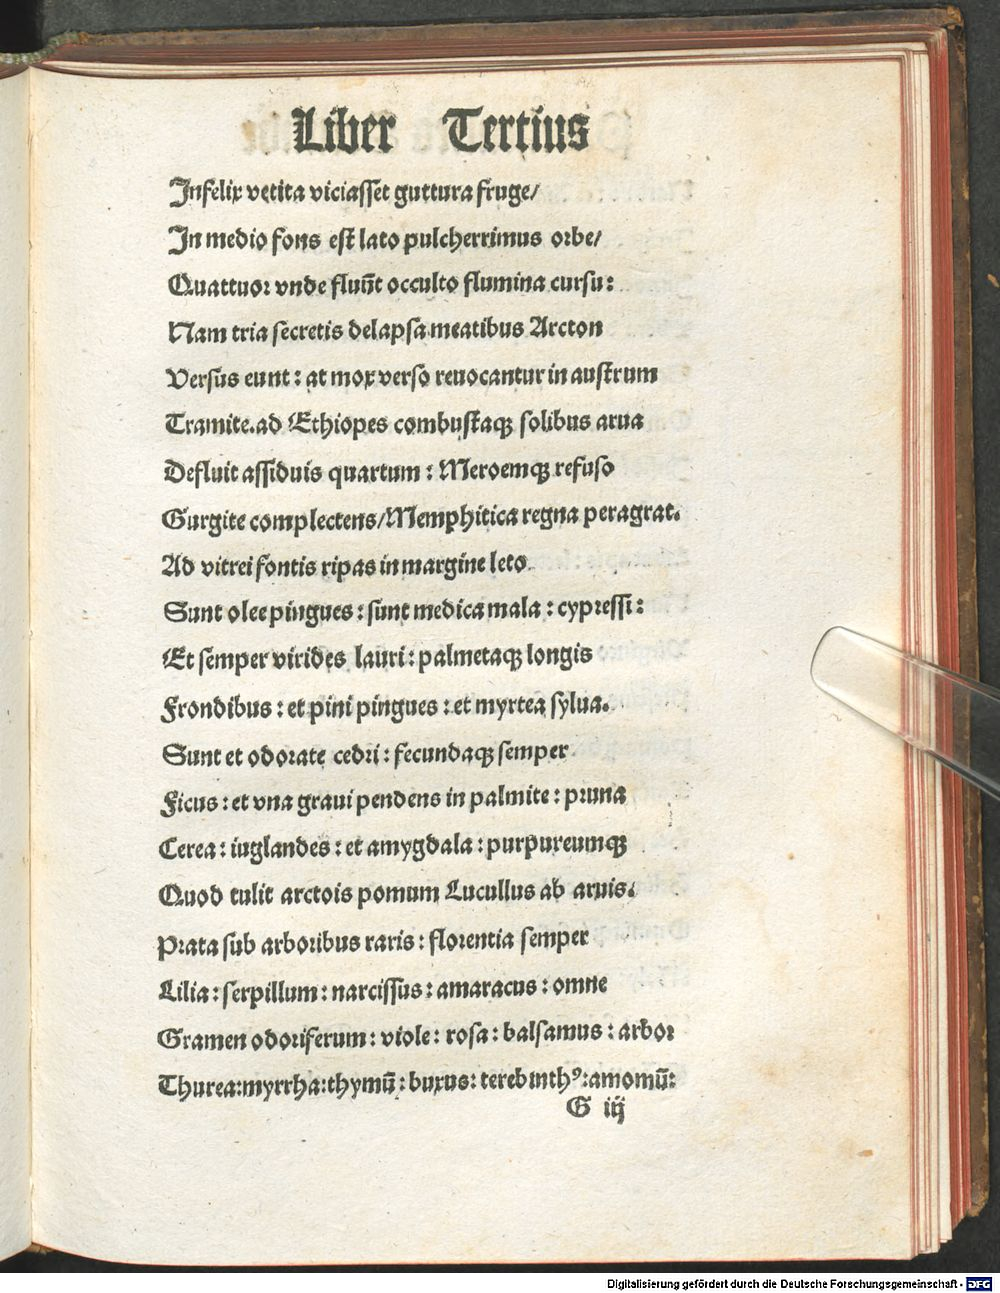 Liber Tertius
Infelix vetita viciasset guttura fruge/
In medio fons est lato pulcherrimus orbe/
Quattuor vnde fluũt occulto flumina cursu:
Nam tria secretis delapsa meatibus Arcton
Versus eunt: at mox verso reuocantur in austrum
Tramite. ad Ethiopes combustaqꝫ solibus arua
Defluit assiduis quartum: Meroemqꝫ refuso
Gurgite complectens/Memphitica regna peragrat.
Ad vitrei fontis ripas in margine leto
Sunt olee pingues: sunt medica mala: cypressi:
Et semper virides lauri: palmetaqꝫ longis
Frondibus: et pini pingues: et myrtea sylua.
Sunt et odorate cedri: fecundaqꝫ semper
Ficus: et vna graui pendens in palmite: pruna
Cerea: iuglandes: et amygdala: purpureumqꝫ
Quod tulit arctois pomum Lucullus ab aruis.
Prata sub arboribus raris: florentia semper
Lilia: serpillum: narcissus: amaracus: omne
Gramen odoriferum: viole: rosa: balsamus: arbor
Thurea: myrrha: thymũ: buxus: terebinthꝰ: amomũ:
G iij
Digitalisierung gefördert durch die Deutsche Forschungsgemeinschaft - DFG